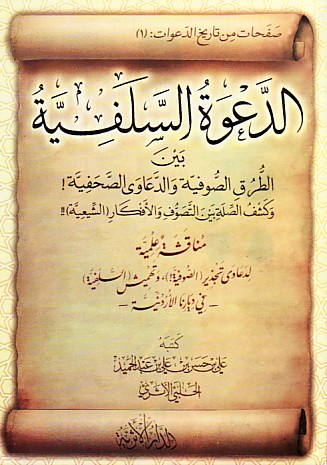 صَفَحَات مِن تَارِيخ الدَّعَوَات: (١)
الدَّعْوَةُ السَّلَفِيَّةُ
بَيْنَ
الطُّرُقِ الصُّوفِيَّةِ وَالدَّعَاوَى الصَّحَفِيَّةِ!
وَكَشْفُ الصِّلَةِ بَيْنَ التَّصَوُّفِ وَالأَفْكَارِ (الشِّيعِيَّةِ)!!
مُنَاقَشَةٌ عِلْمِيَّة
لدعاوى تجذير (الصّوفيّة!)، وتهميش (السلفيّة)
- في ديارنا الأردنيّة -
كتبه
علي بن حسن بن علي بن عبد الحميد
الحلبي الأثري
الدار الأثرية